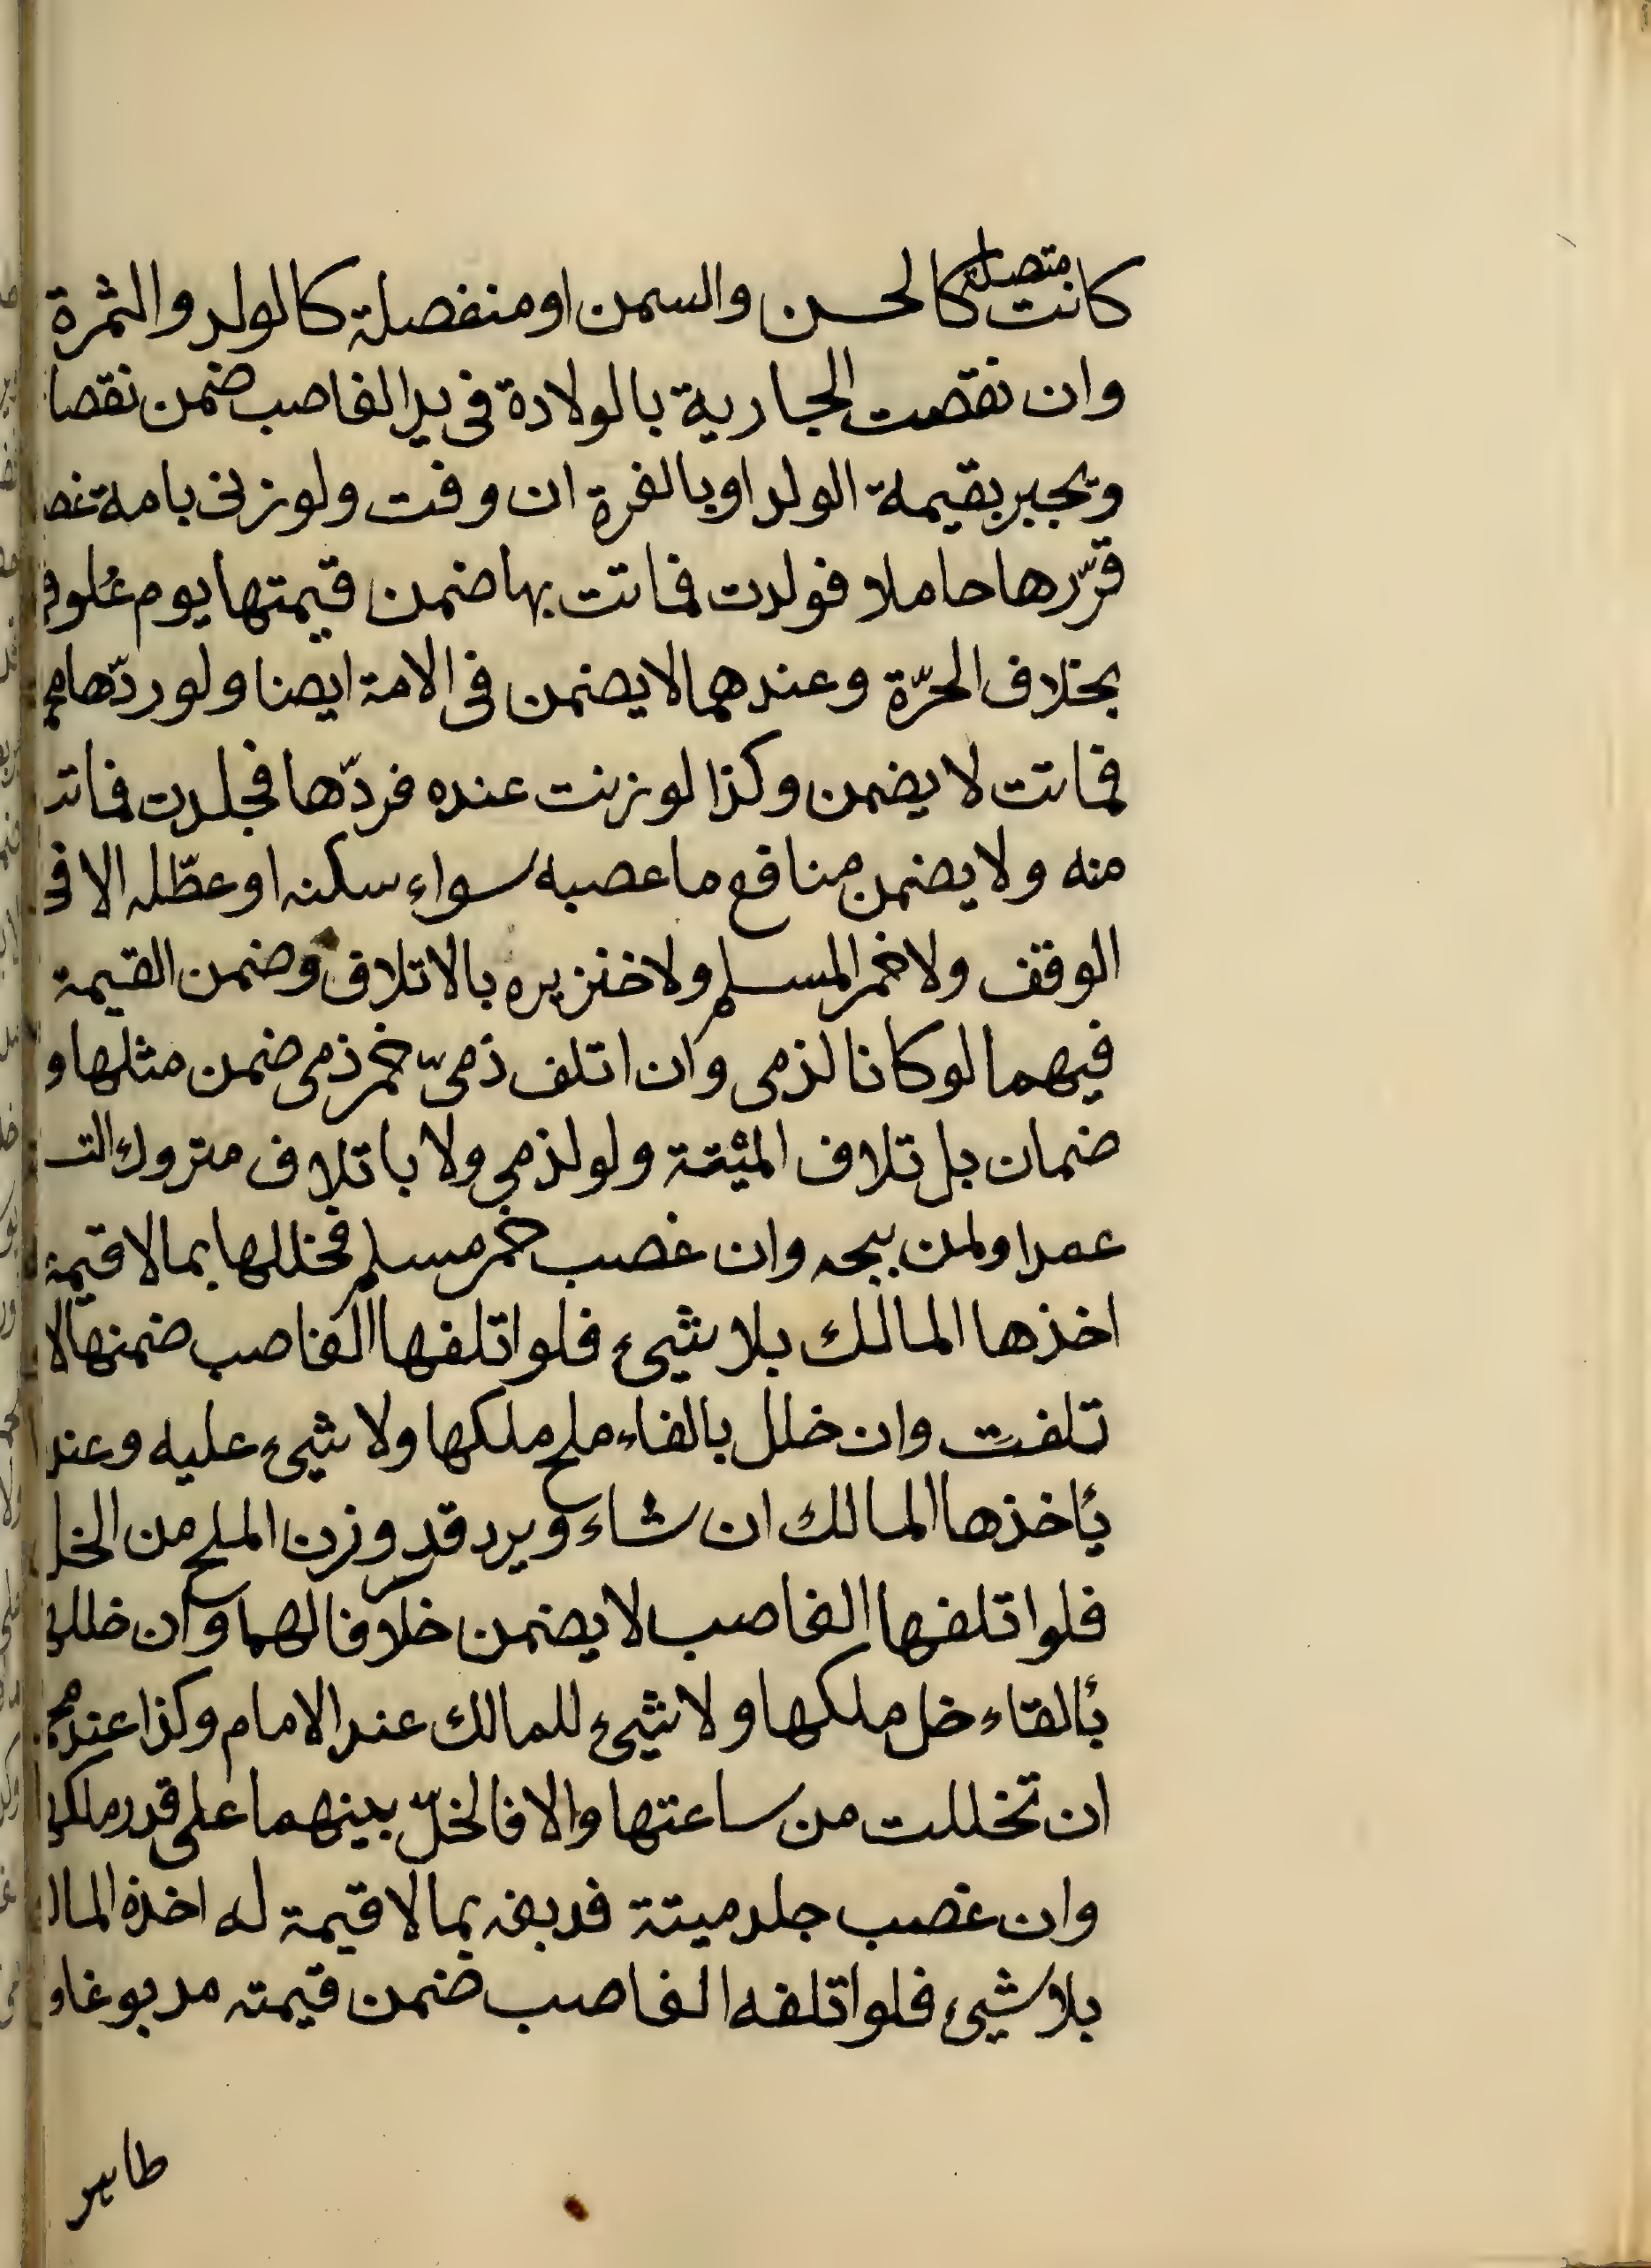 كانت متصلة كالحسن والسمن او منفصلة كالولد والثمرة
وان نقصت الجارية بالولادة فى يد الغاصب ضمن نقصا
ويجبر بقيمة الولد او بالغرة ان وفت ولو زنى بامة غص
قرّدها حاملا فولدت فماتت بها ضمن قيمتها يوم علوق
بخلاف الحرّة وعندهما لا يضمن فى الامة ايضا ولو ردّها مح
فماتت لا يضمن وكذا لو زنت عنده فردّها فجلدت فماتت
منه ولا يضمن منافع ما عصبه سواء سكنه او عطّله الا فى
الوقف ولا خمر المسلم ولا خنزيره بالاتلاف وضمن القيمة
فيهما لو كانا لذمى وان اتلف ذمىّ خمر ذمى ضمن مثلها و
ضمان بل تلاف الميتة ولو لذمى ولا باتلاف متروك الت
عمدا ولمن يبحه وان غصب خمر مسلم فخللها بما لا قيمة
اخذها المالك بلا شيئ فلو اتلفها الغاصب ضمنها لا
تلفت وان خلل بالقاء ملح ملكها ولا شيئ عليه وعند
يأخذها المالك ان شاء ويرد قدر وزن الملح من الخل
فلو اتلفها الغاصب لا يضمن خلافا لهما وان خلله
بألقاء خل ملكها ولا شيئ للمالك عند الامام وكذا عند مح
ان تخللت من ساعتها والا فالخلّ بينهما على قدر ملكه
وان غصب جلد ميتة فدبغه بما لا قيمة له اخذه المال
بلا شيئ فلو اتلفه الغاصب ضمن قيمته مدبوغا و
طاهر